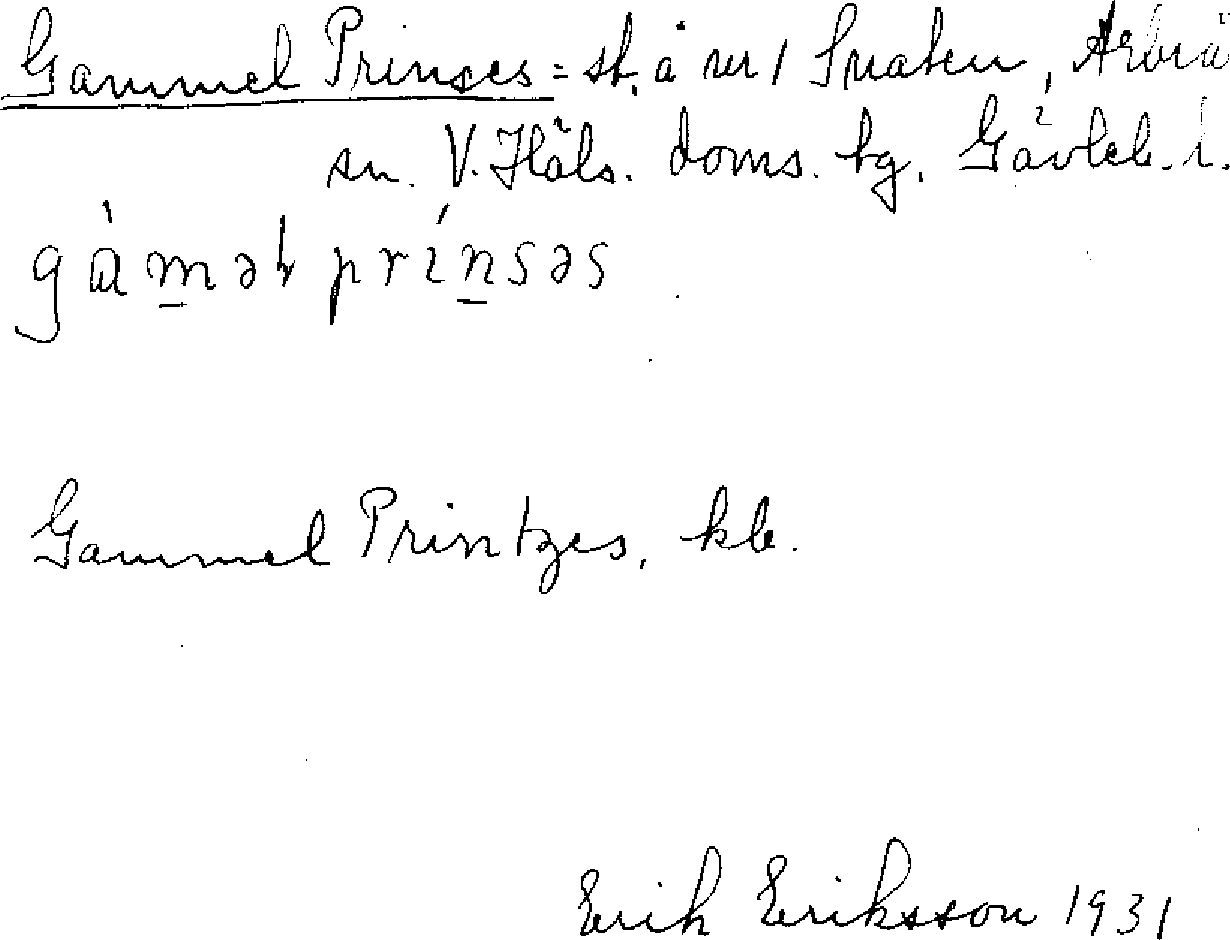 Gammel Prinses = st. å nr 1 Smaken, Arbrå
sn. V. Häls. doms. bg. Gävleb. l.
gáməl prínsəs
Gammel Printzes, klb.
Erik Eriksson 1931